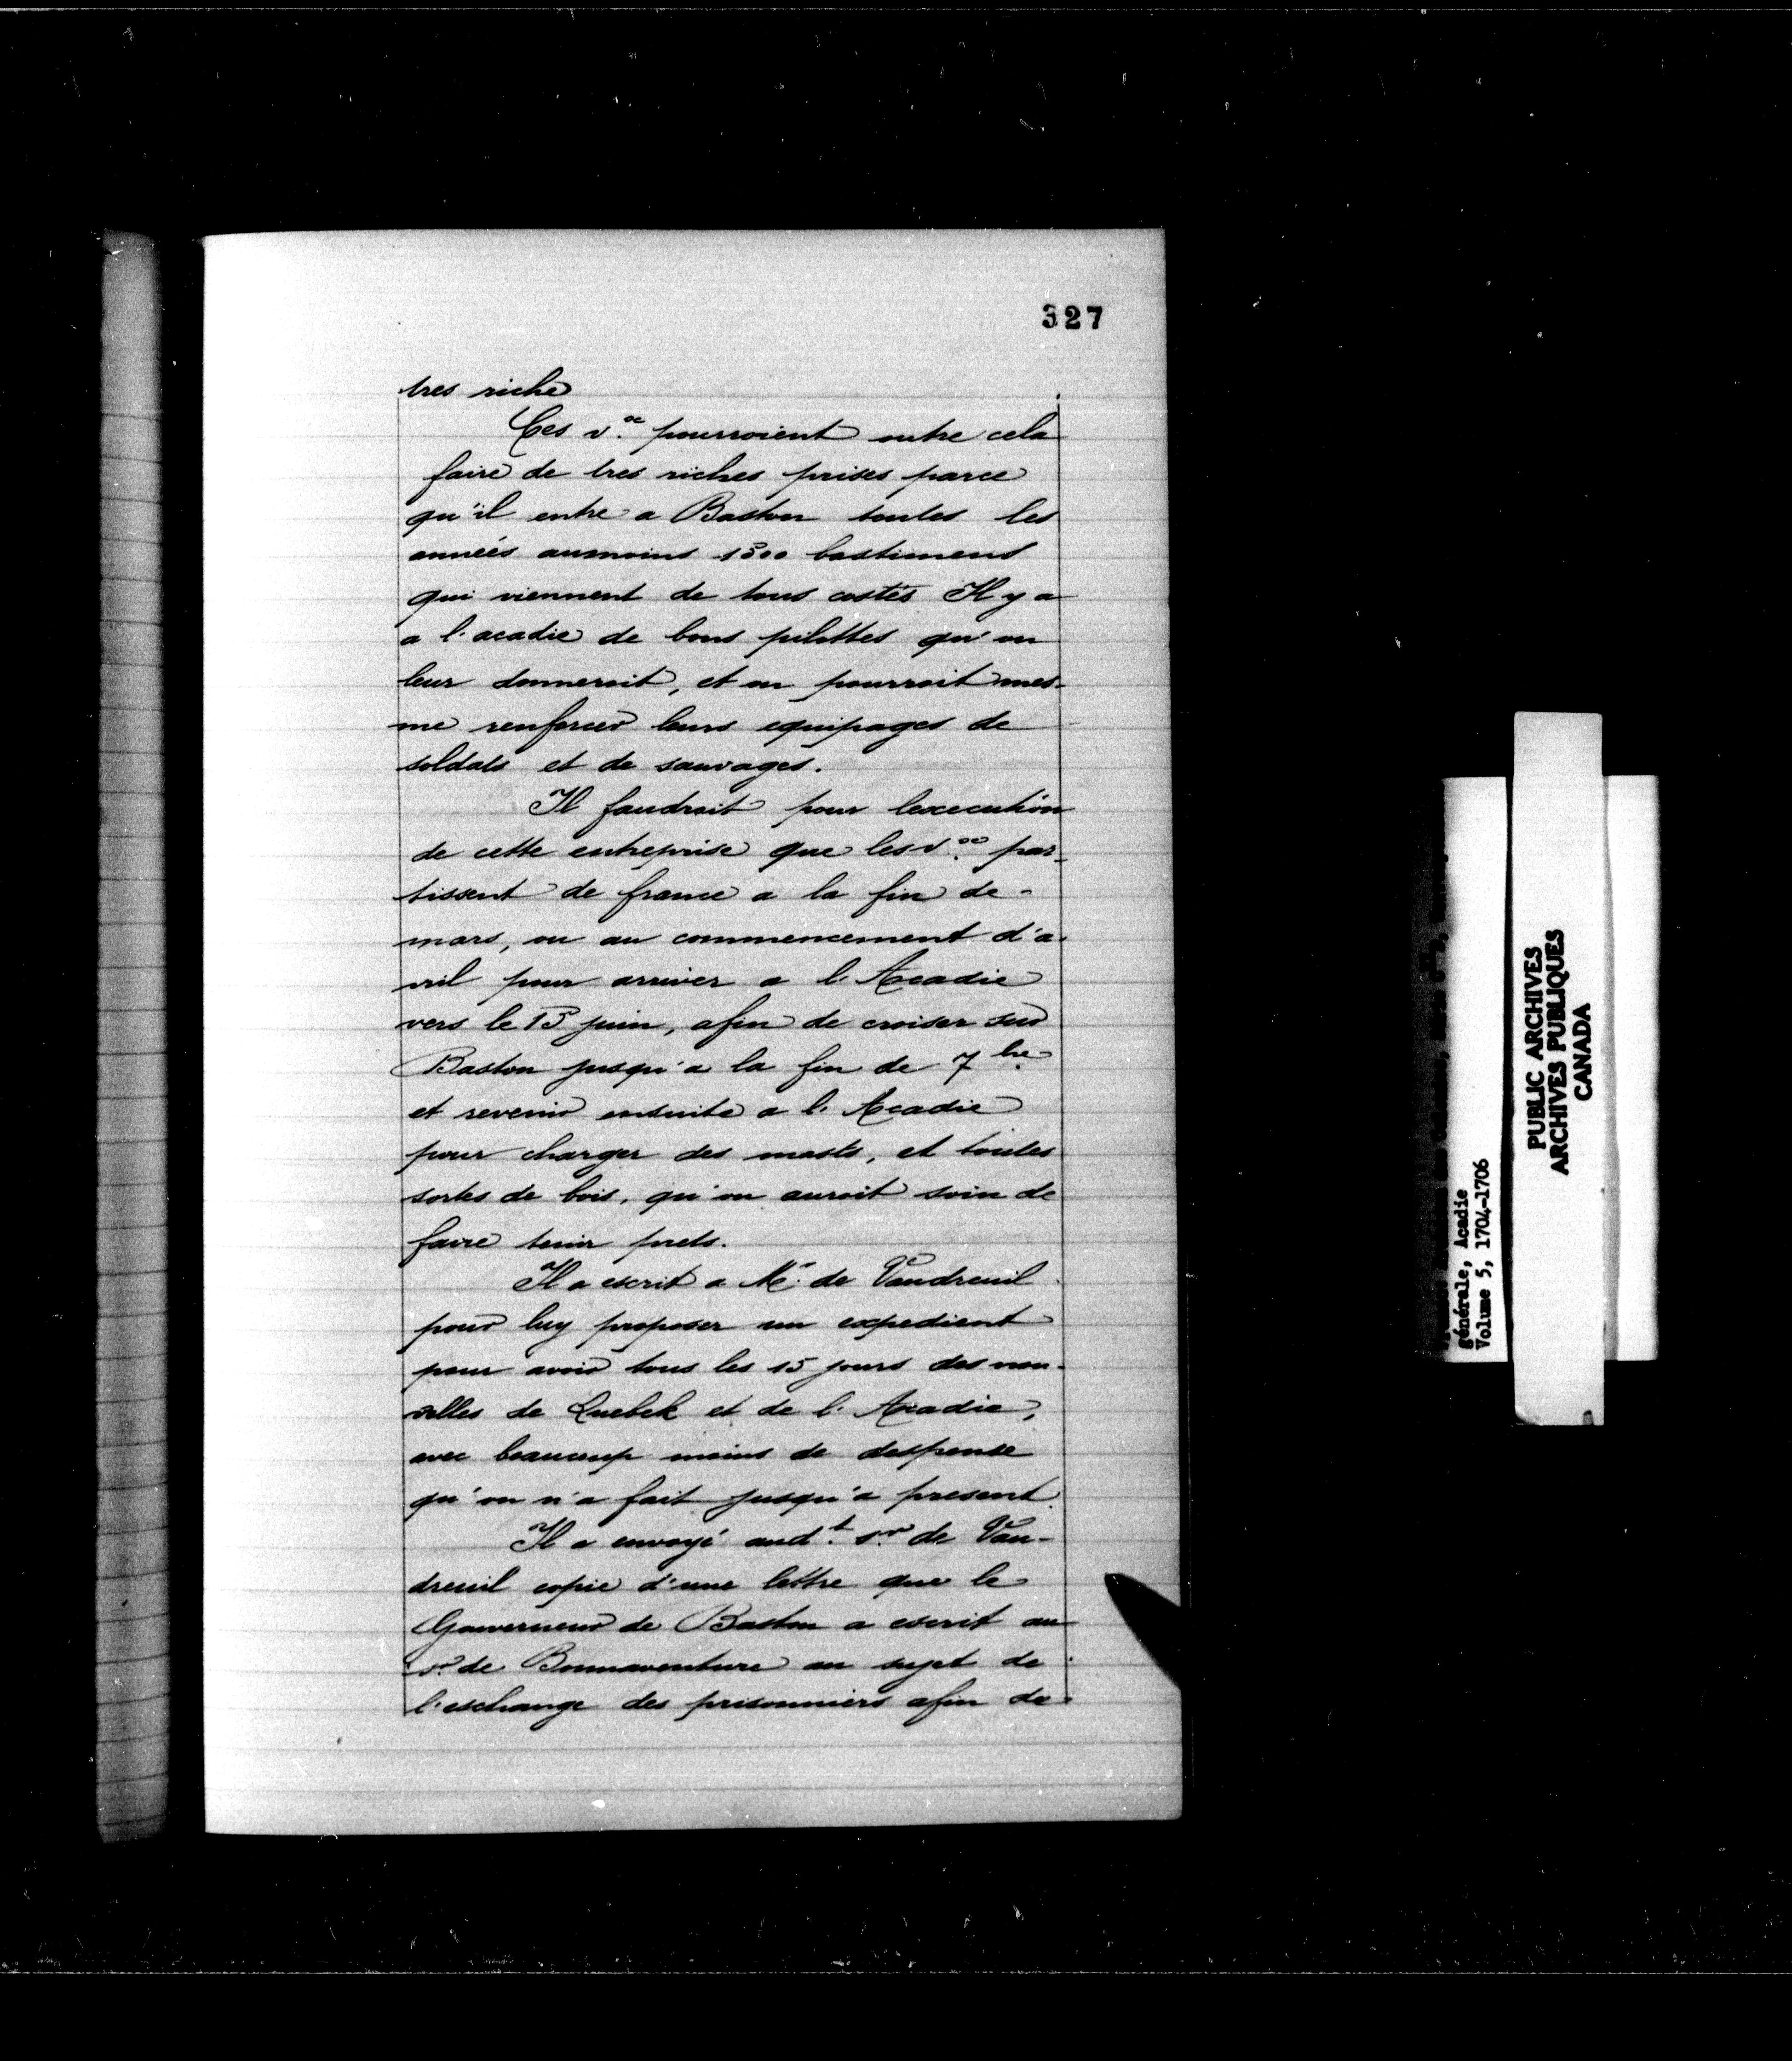 327
tres riche
Ces v.aux pourroient outre cela
faire de tres riches prises parce
qu'il entre a Baston toutes les
années aumoins 1500 bastimens
qui viennent de tous costés Il y a
a l'acadie de bons pilottes qu'on
leur donneroit, et on pourroit mes-
me renforcer leurs equipages de
soldats et de sauvages.
Il faudroit pour lexecution
de cette entreprise que les v.aux par-
tissent de france a la fin de
mars, ou au commencement d'a-
vril pour arriver a l'Acadie
vers le 15 juin, afin de croiser sur
Baston jusqu'a la fin de 7bre
et revenir ensuite a l'Acadie
pour charger des masts, et toutes
sortes de bois, qu'on auroit soin de
faire tenir prets.
Il a escrit a Mr. de Vaudreuil
pour luy proposer un expedient
pour avoir tous les 15 jours des nou-
velles de Quebek et de l'Acadie,
avec beaucoup moins de despense
qu'on n'a fait jusqu'a present.
Il a envoyé aud.t s.r de Vau-
dreuil copie d'une lettre que le
Gouverneur de Baston a escrit au
s.r de Bonnaventure au sujet de
l'eschange des prisonniers afin de
générale, Acadie
Volume 5, 1704-1706
PUBLIC ARCHIVES
ARCHIVES PUBLIQUES
CANADA